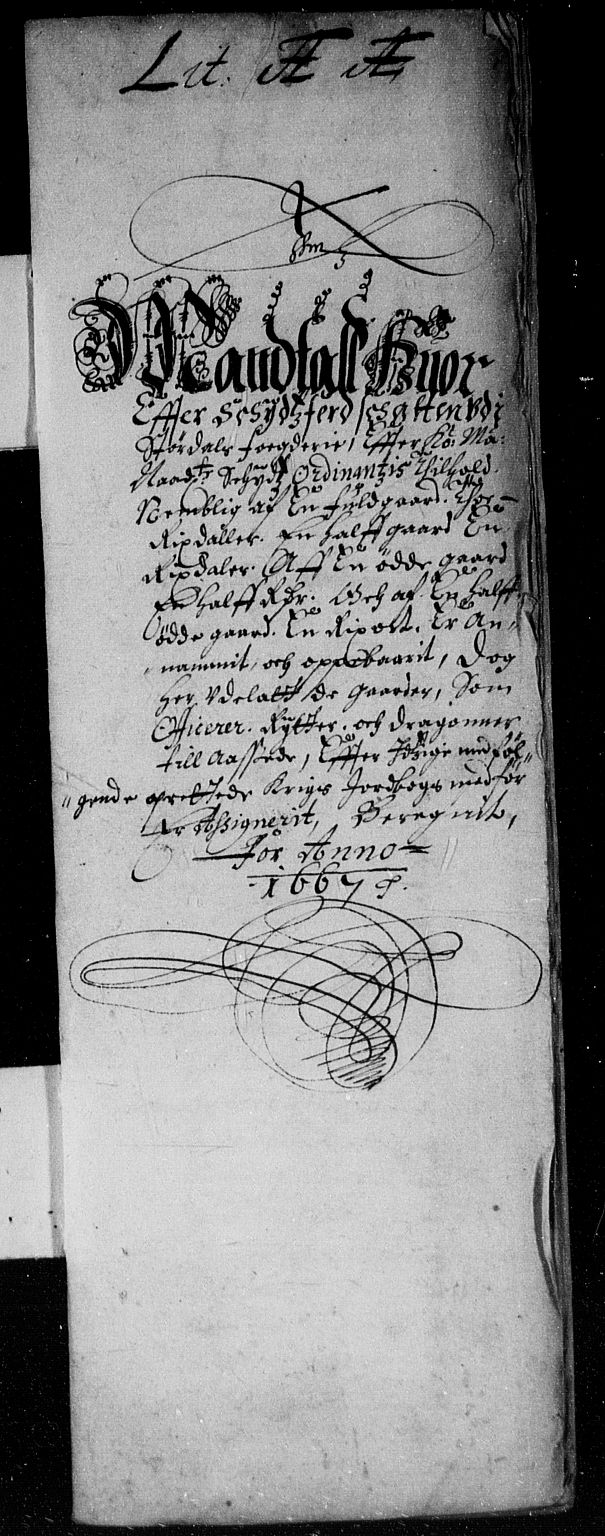 Lit. Æ Æ
Mandtall Huor
Effter Schydtzferd schatten vdj
Størdals foegderie, Effter Kō: Ma:
Naad: Schydtz Ordinantzis Thilhold.
Nemblig af En fuldgaard. Thoe
Rixdaller. En halff gaard En
Rixdaler. Aff En ødde gaard
En halff Rdr. Och af En halff
ødde gaard. En Rixort. Er An-
nammit, och oppebaarit, Dog
her vdelatt de gaarder, Som
Officerer. Rytter. och dragonner
till Aassæde, Effter hosige medføl-
gende oprettede Krigs Jordbogs medfør
Er Assignerit, Beregnit,
For Anno
1667